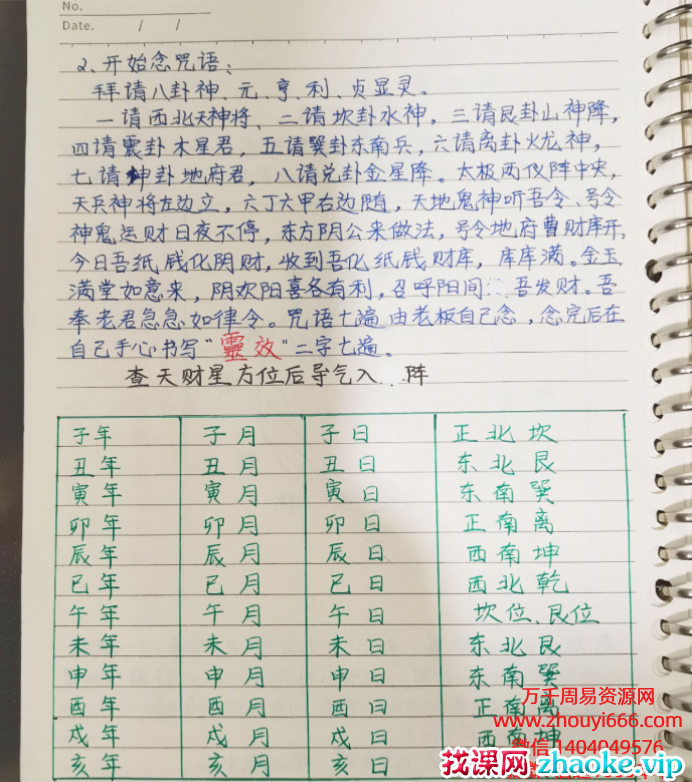 No.
Date. / /
2、开始念咒语：
拜请八卦神、元、亨、利、贞显灵。
一请西北天神将、二请坎卦水神，三请艮卦山神降，
四请震卦木星君，五请巽卦东南兵，六请离卦火龙神，
七请坤卦地府君，八请兑卦金星降。太极两仪阵中央，
天兵神将左边立，六丁六甲右边随，天地鬼神听吾令、号令
神鬼运财日夜不停，东方阴公来做法，号令地府曹财库开，
今日吾纸钱化阴财，收到吾化纸钱财库，库库满。金玉
满堂如意来，阴欢阳喜各有利，召呼阳间 吾发财。吾
奉老君急急如律令。咒语七遍由老板自己念，念完后在
自己手心书写“靈效”二字七遍。
查天财星方位后导气入 阵
子年 子月 子日 正北坎
丑年 丑月 丑日 东北艮
寅年 寅月 寅日 东南巽
卯年 卯月 卯日 正南离
辰年 辰月 辰日 西南坤
巳年 巳月 巳日 西北乾
午年 午月 午日 坎位、艮位
未年 未月 未日 东北艮
申年 申月 申日 东南巽
酉年 酉月 酉日 正南离
戌年 戌月 戌日 西南坤
亥年 亥月 亥日
万千周易资源网
www.zhouyi666.com
微信1404049576
找课网zhaoke.vip